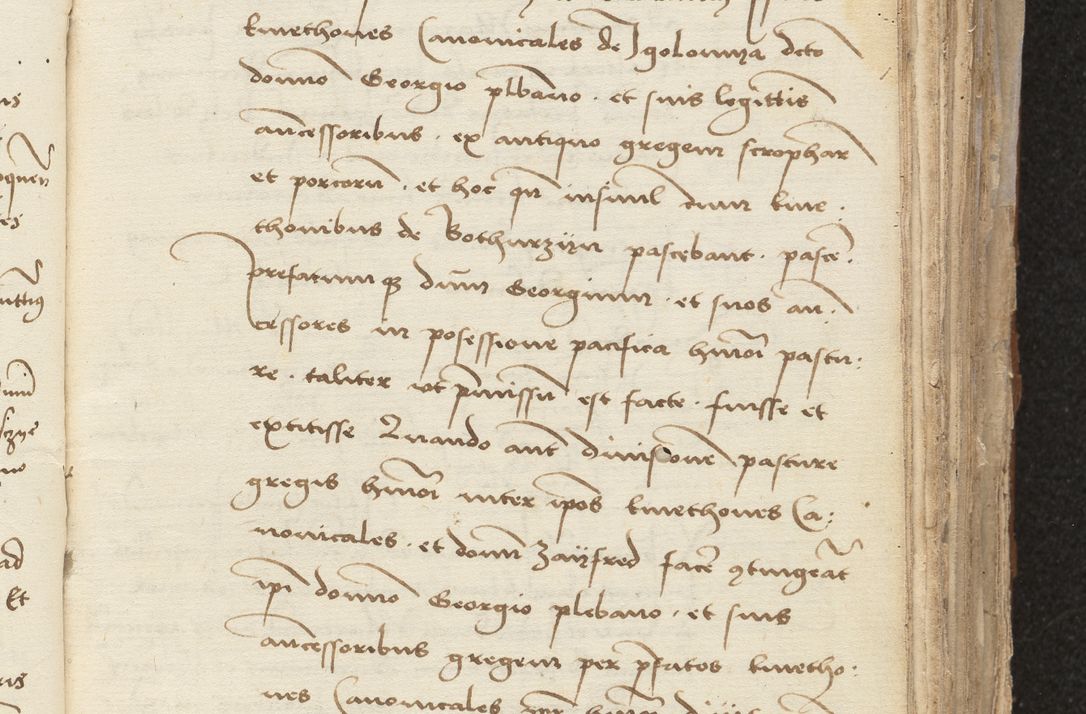 kmethones Canonicales de Igolomya dcto
domno Georgio plbano . et suis legittis
ancessoribus . ex antiquo gregem scrophar
et porcoru . et hoc qn insimul cum kme :
thonibus de Bothurzyn pascebant . pasce .
prefatumq dum Georgium . et suos an .
cessores in posessione pacifica hmoi pastu :
re . taliter ut pmissu est facte . fuisse et
extitisse Quando aut diuisione pasture
gregis hmoi inter ipos kmethones Ca :
nonicales . et domn Zayfred face otingeat
ipi domno Georgio plebano . et suis
ancessoribus gregem per pfatos kmetho .
nes Canonicales